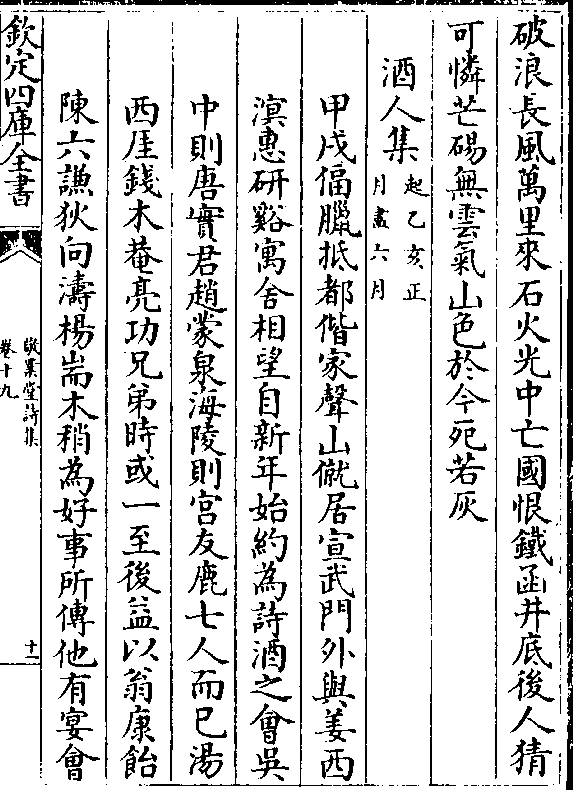 破浪長風萬里來石火光中亡國恨鐵函井底後人猜
可憐芒碭無雲氣山色於今死若灰
酒人集起乙亥正月盡六月
甲戌偪臘抵都偕家聲山僦居宣武門外與姜西
溟惠研谿寓舍相望自新年始約為詩酒之會吳
中則唐實君趙蒙泉海陵則宫友鹿七人而已湯
西厓錢木菴亮功兄弟時或一至後益以翁康飴
陳六謙狄向濤楊耑木稍為好事所傳他有宴會
欽定四庫全書
敬業堂詩集
卷十九
十一